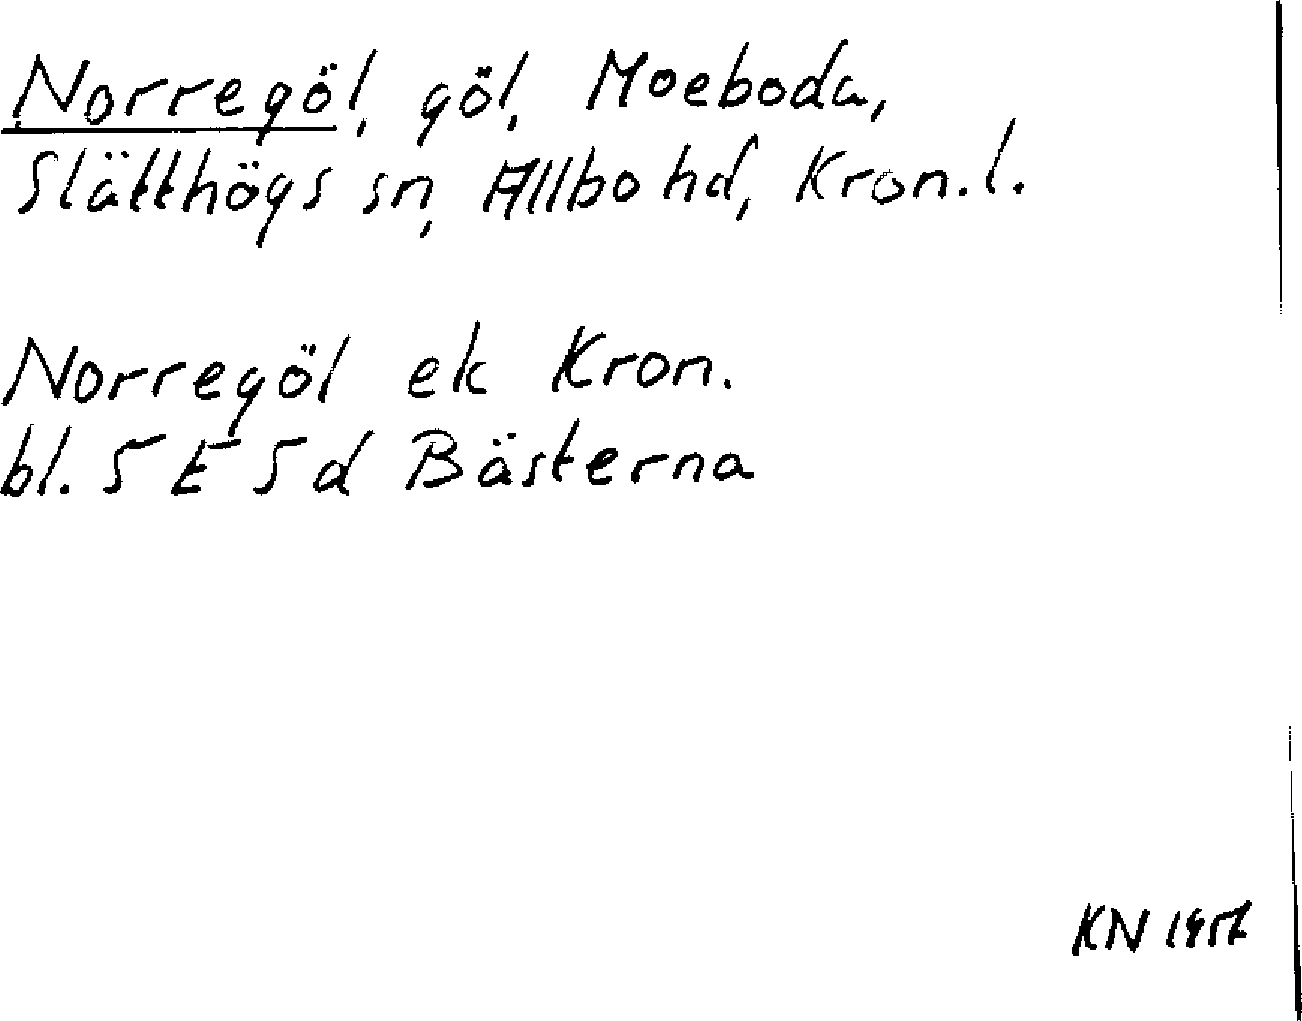 Norregöl, göl, Moeboda,
Slätthögs sn, Allbo hd, Kron.l.
Norregöl ek Kron.
bl. 5 E 5 d Bästerna
KN